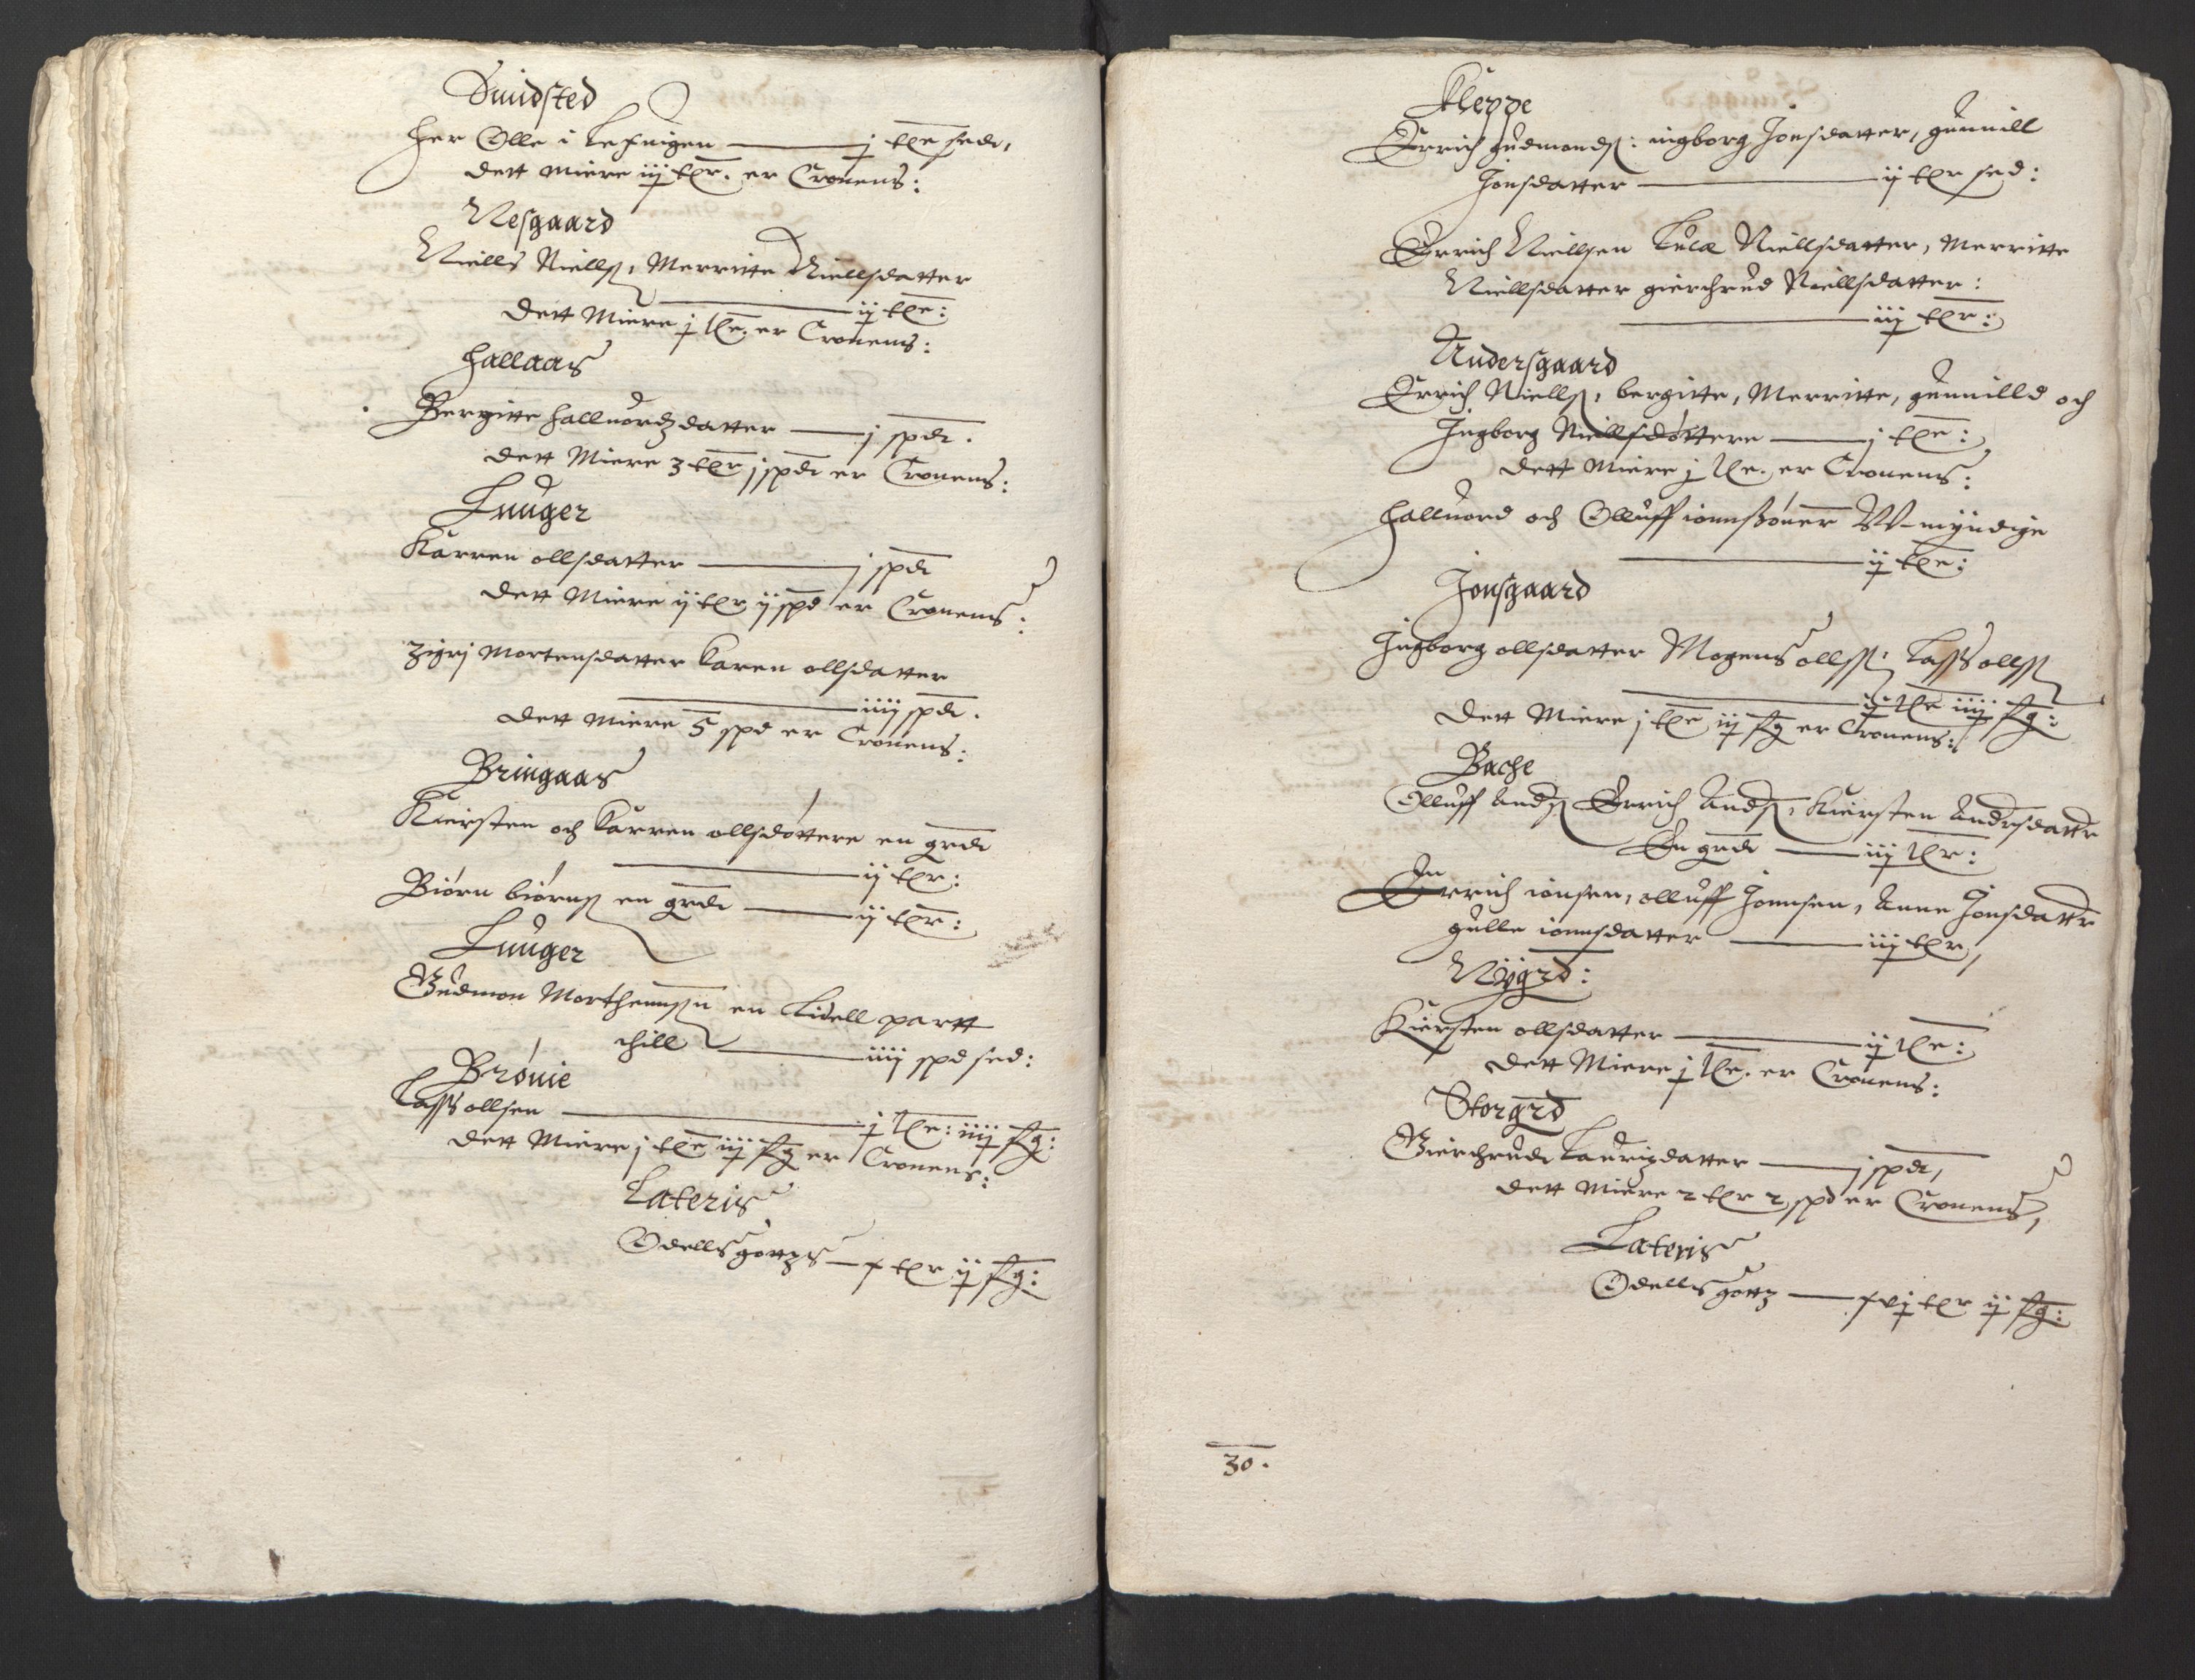 Smidsted
Her Olle i Lefnigen — j tle sed,
Dett Miere iij tlr. er Cronens:
Nesgaard
Niells Niells, Merritte Niellsdatter
— ij tle:
Dett Miere j tle. er Cronens:
Hallaas
Bergitte Halluordz datter — j spd.
Dett Miere 3 tlr j spd er Cronens:
Lunger
Karren ollsdatter — j spd
Dett Miere ij tlr ij spd er Cronens:
Zigrj Mortensdatter Karen ollsdatter
— iiij spd.
Dett Miere 5 spd er Cronens:
Bringaas
Kiersten och Karren ollsdøttere en grd
— ij tlr:
Biørn biørns en grd — ij tlr:
Lunger
Gudmon Morthenssn en Lidell partt
— iiij spd sed:
Brønie
Lass ollsen — j tle: iiij sg:
Dett Miere j tle iij sg er Cronens:
Lateris
Odellsgottzs — x tlr ij sg:
Kleppe
Errich gudmonds: ingborg Jonsdatter, gunnill
Jonsdatter — ij tlr sed:
Errich Niellsen Lucæ Niellsdatter, Merritte
Niellsdatter gierthrud Niellsdatter:
— iij tlr:
Andersgaard
Errich Niells, bergitte, Merritte, gunnilld och
Ingborg Niellsdøttere — j tle:
Dett Miere j tle. er Cronens:
Halluord och Olluff ionnssøner W-myndige
— ij tle:
Jonsgaard
Ingborg ollsdatter Mogens ollss: Lass ollss
— ij tle iiij sg:
Dett Miere j tle iij sg er Cronens:
Bache
Olluff Ands Errich Ands, Kiersten Andrsdattr
En grd — iij tlr:
En
Errich ionsen, olluff Jonnsen, Anne Jonsdattr
gulle ionnsdatter — iij tlr,
Nÿgrd:
Kiersten ollsdatter — ij tle:
Dett Miere j tle. er Cronens:
Storgrd
Gierthrud Lauritzdatter — j spd,
Dett Miere 2 tlr 2 spd er Cronens,
Lateris
Odellsgottz — xvj tlr ij sg:
30.